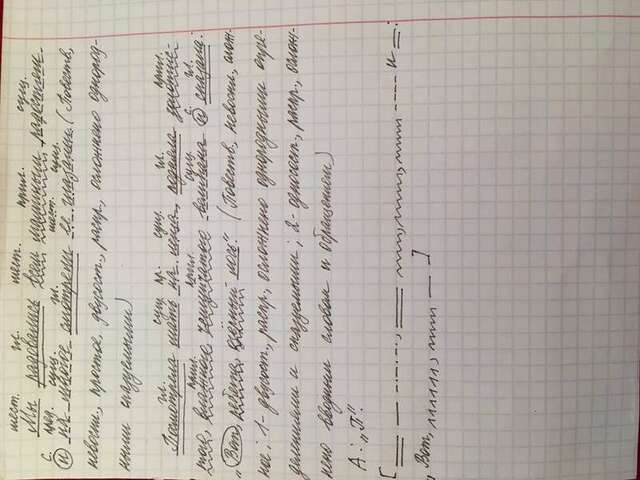 мест. гл. мест. прил. сущ.
Мы радовались всем маминым радостям
с. пред. сущ. гл. мест. сущ.
и на многое смотрели её глазами (Повеств,
невоскл., простое, двусост., распр., осложнено однород-
ными сказуемыми)
гл. сущ. пр. сущ. гл. прил.
Посмотрела мать на леща, подняла золотис-
прил. прил. сущ. с. гл.
того, влажного чешуйчатого великана и сказала:
„Вот, ребята, озерный лось". (Повеств, невоскл, слож-
ное; 1- двусост., распр., осложнено однородными опре-
делениями и сказуемыми; 2- односост., распр., ослож-
нено вводным словом и обращением)
А: „П".
[ и :
„Вот, , ]